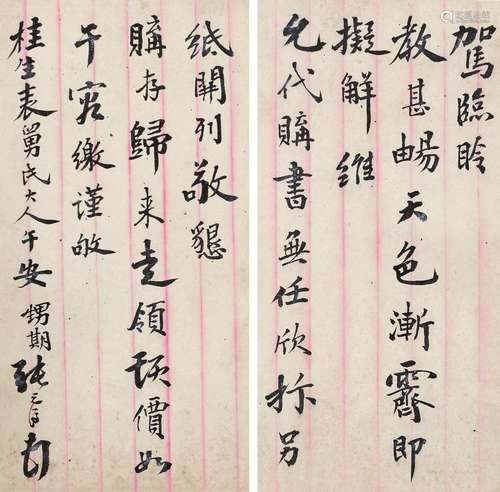 駕臨聆
教甚暢天色漸霽即
擬解維
允代購書無任欣抃另
紙開列敬懇
購存歸来走領價如
干容繳謹敂
桂生表舅氏大人午安 甥期張元济